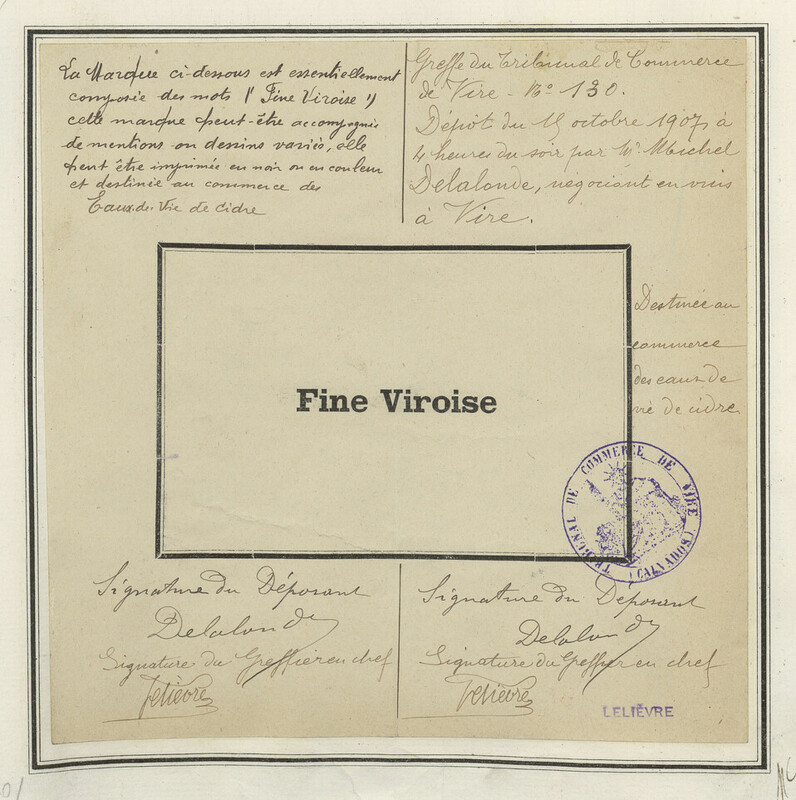 La Marque ci-dessous est essentiellement
composée des mots (" Fine Viroise ")
cette marque peut-être accompagnée
de mentions ou dessins variés, elle
peut être imprimée en noir ou en couleur
et destinée au commerce des
Eaux-de-Vie de Cidre
Greffe du Tribunal de Commerce
de Vire - No 130.
Dépôt du 15 octobre 1907, à
4 heures du soir par Mr Michel
Delalonde, négociant en vins
à Vire.
Destinée au
commerce
des eaux de
vie de cidre
Fine Viroise
TRIBUNAL DE COMMERCE DE VIRE
(CALVADOS)
Signature du Déposant
Delalonde
Signature du Greffier en chef
Lelièvre
Signature du Déposant
Delalonde
Signature du Greffier en chef
Lelièvre
LELIÈVRE